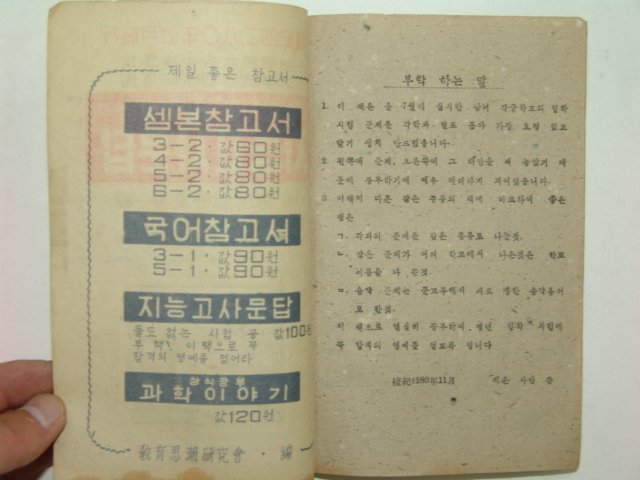 제일 좋은 참고서
셈본참고서
3-2·값60원
4-2·값80원
5-2·값80원
6-2·값80원
국어참고서
3-1·값90원
5-1·값90원
지능고사문답
둘도 없는 시험 공 값100원
부 책! 이 책으로 꼭
합격의 영예를 얻어라
상식공부
과학이야기
값120원
教育思潮研究會·編
부탁 하는 말
1. 이 책은 올 7월에 실시한 남녀 각중학교의 입학
시험 문제를 각과와 월도 통아 가장 요령 있고
알기 쉽게 만드었습니다.
2. 왼쪽에 문제, 오른쪽에 그 대답을 써 놓았기 때
문에 공부하기에 매우 편리하게 되어있습니다.
3. 이책이 다른 같은 종류의 책에 비교하여 좋은
점은
ㄱ. 각과의 문제를 같은 종류로 나눈것.
ㄴ. 같은 문제가 여러 학교에서 나온것은 학교
이름을 다 쓴것.
ㄷ. 음악 문제는 문교부에서 새로 정한 음악용어
로 한것.
이 책으로 열심히 공부하여 명년 입학 시험에
꼭 합격의 영예를 얻도록 합니다
檀紀4280年11月 지은 사람 씀